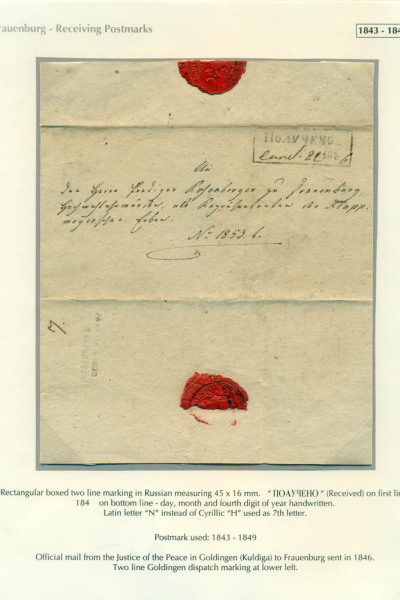 rauenburg - Receiving Postmarks
1843 - 184
ПОЛУЧЕНО
An
den Herrn Prediger Rosenberger zu Frauenburg
Hochwohlehrwürden, als Repräsentanten der Klapp-
meyerschen Erben.
No 1853. b.
7.
Rectangular boxed two line marking in Russian measuring 45 x 16 mm. "ПОЛУЧЕНО" (Received) on first lin
184 on bottom line - day, month and fourth digit of year handwritten.
Latin letter "N" instead of Cyrillic "H" used as 7th letter.
Postmark used: 1843 - 1849
Official mail from the Justice of the Peace in Goldingen (Kuldiga) to Frauenburg sent in 1846.
Two line Goldingen dispatch marking at lower left.